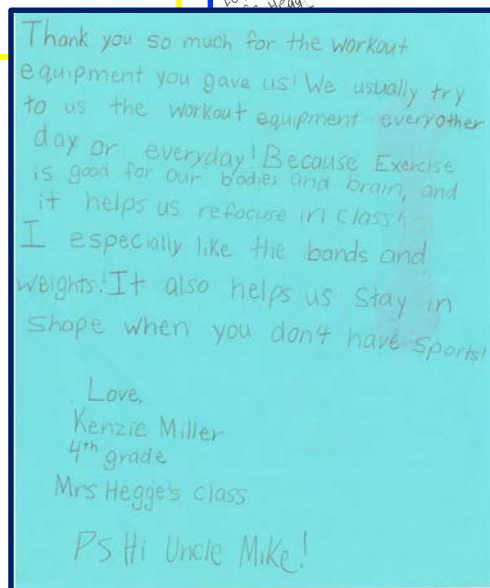 Thank you so much for the workout
equipment you gave us! We usually try
to us the workout equipment everyother
day or everyday! Because Exercise
is good for our bodies and brain, and
it helps us refocuse in class!
I especially like the bands and
weights! It also helps us stay in
shape when you don't have sports!
Love,
Kenzie Miller
4th grade
Mrs Hegge's class
PS Hi Uncle Mike!